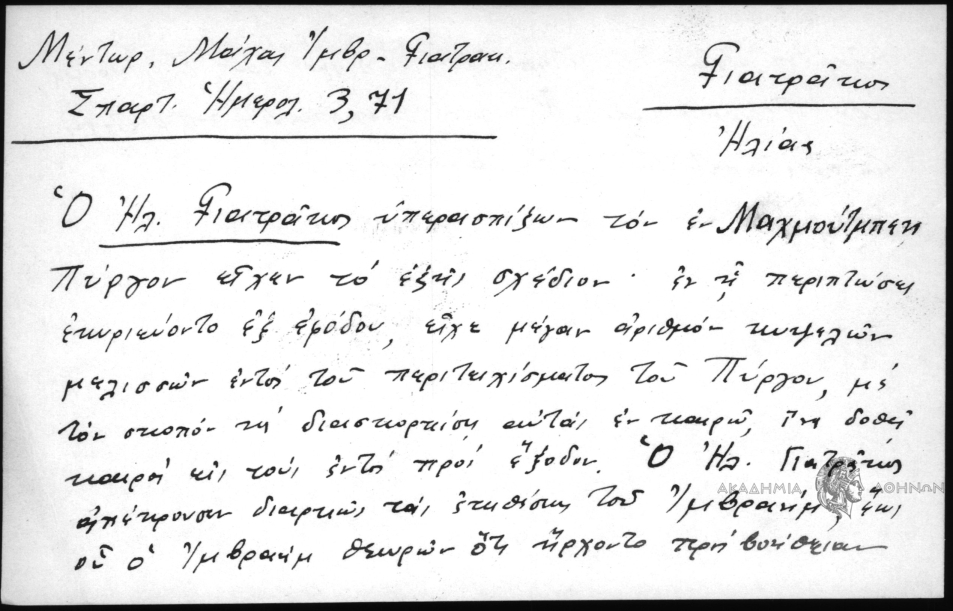 Μέντωρ, Μάχαι Ἰμβρ - Γιατρακ.
Σπαρτ. Ἡμερολ. 3, 71
Γιατρᾶκος
Ἠλίας
Ὁ Ἠλ. Γιατρᾶκος ὑπερασπίζων τὸν ἐν Μαχμούτμπεη
Πύργον εἶχεν τὸ ἑξῆς σχέδιον· ἐν ᾗ περιπτώσει
ἐκυριεύοντο ἐξ ἐφόδου, εἶχε μέγαν ἀριθμὸν κυψελῶν
μελισσῶν ἐντὸς τοῦ περιτειχίσματος τοῦ Πύργου, μὲ
τὸν σκοπὸν νὰ διασκορπίσῃ αὐτὰς ἐν καιρῷ, ἵνα δοθῇ
καιρὸς εἰς τοὺς ἐντὸς πρὸς ἔξοδον. Ὁ Ἠλ. Γιατρᾶκος
ἀπέκρουσεν διαρκῶς τὰς ἐπιθέσεις τοῦ Ἰμβραήμ, ἕως
οὗ ὁ Ἰμβραήμ θεωρῶν ὅτι ἤρχοντο πρὸς βοήθειαν
ΑΚΑΔΗΜΙΑ ΑΘΗΝΩΝ